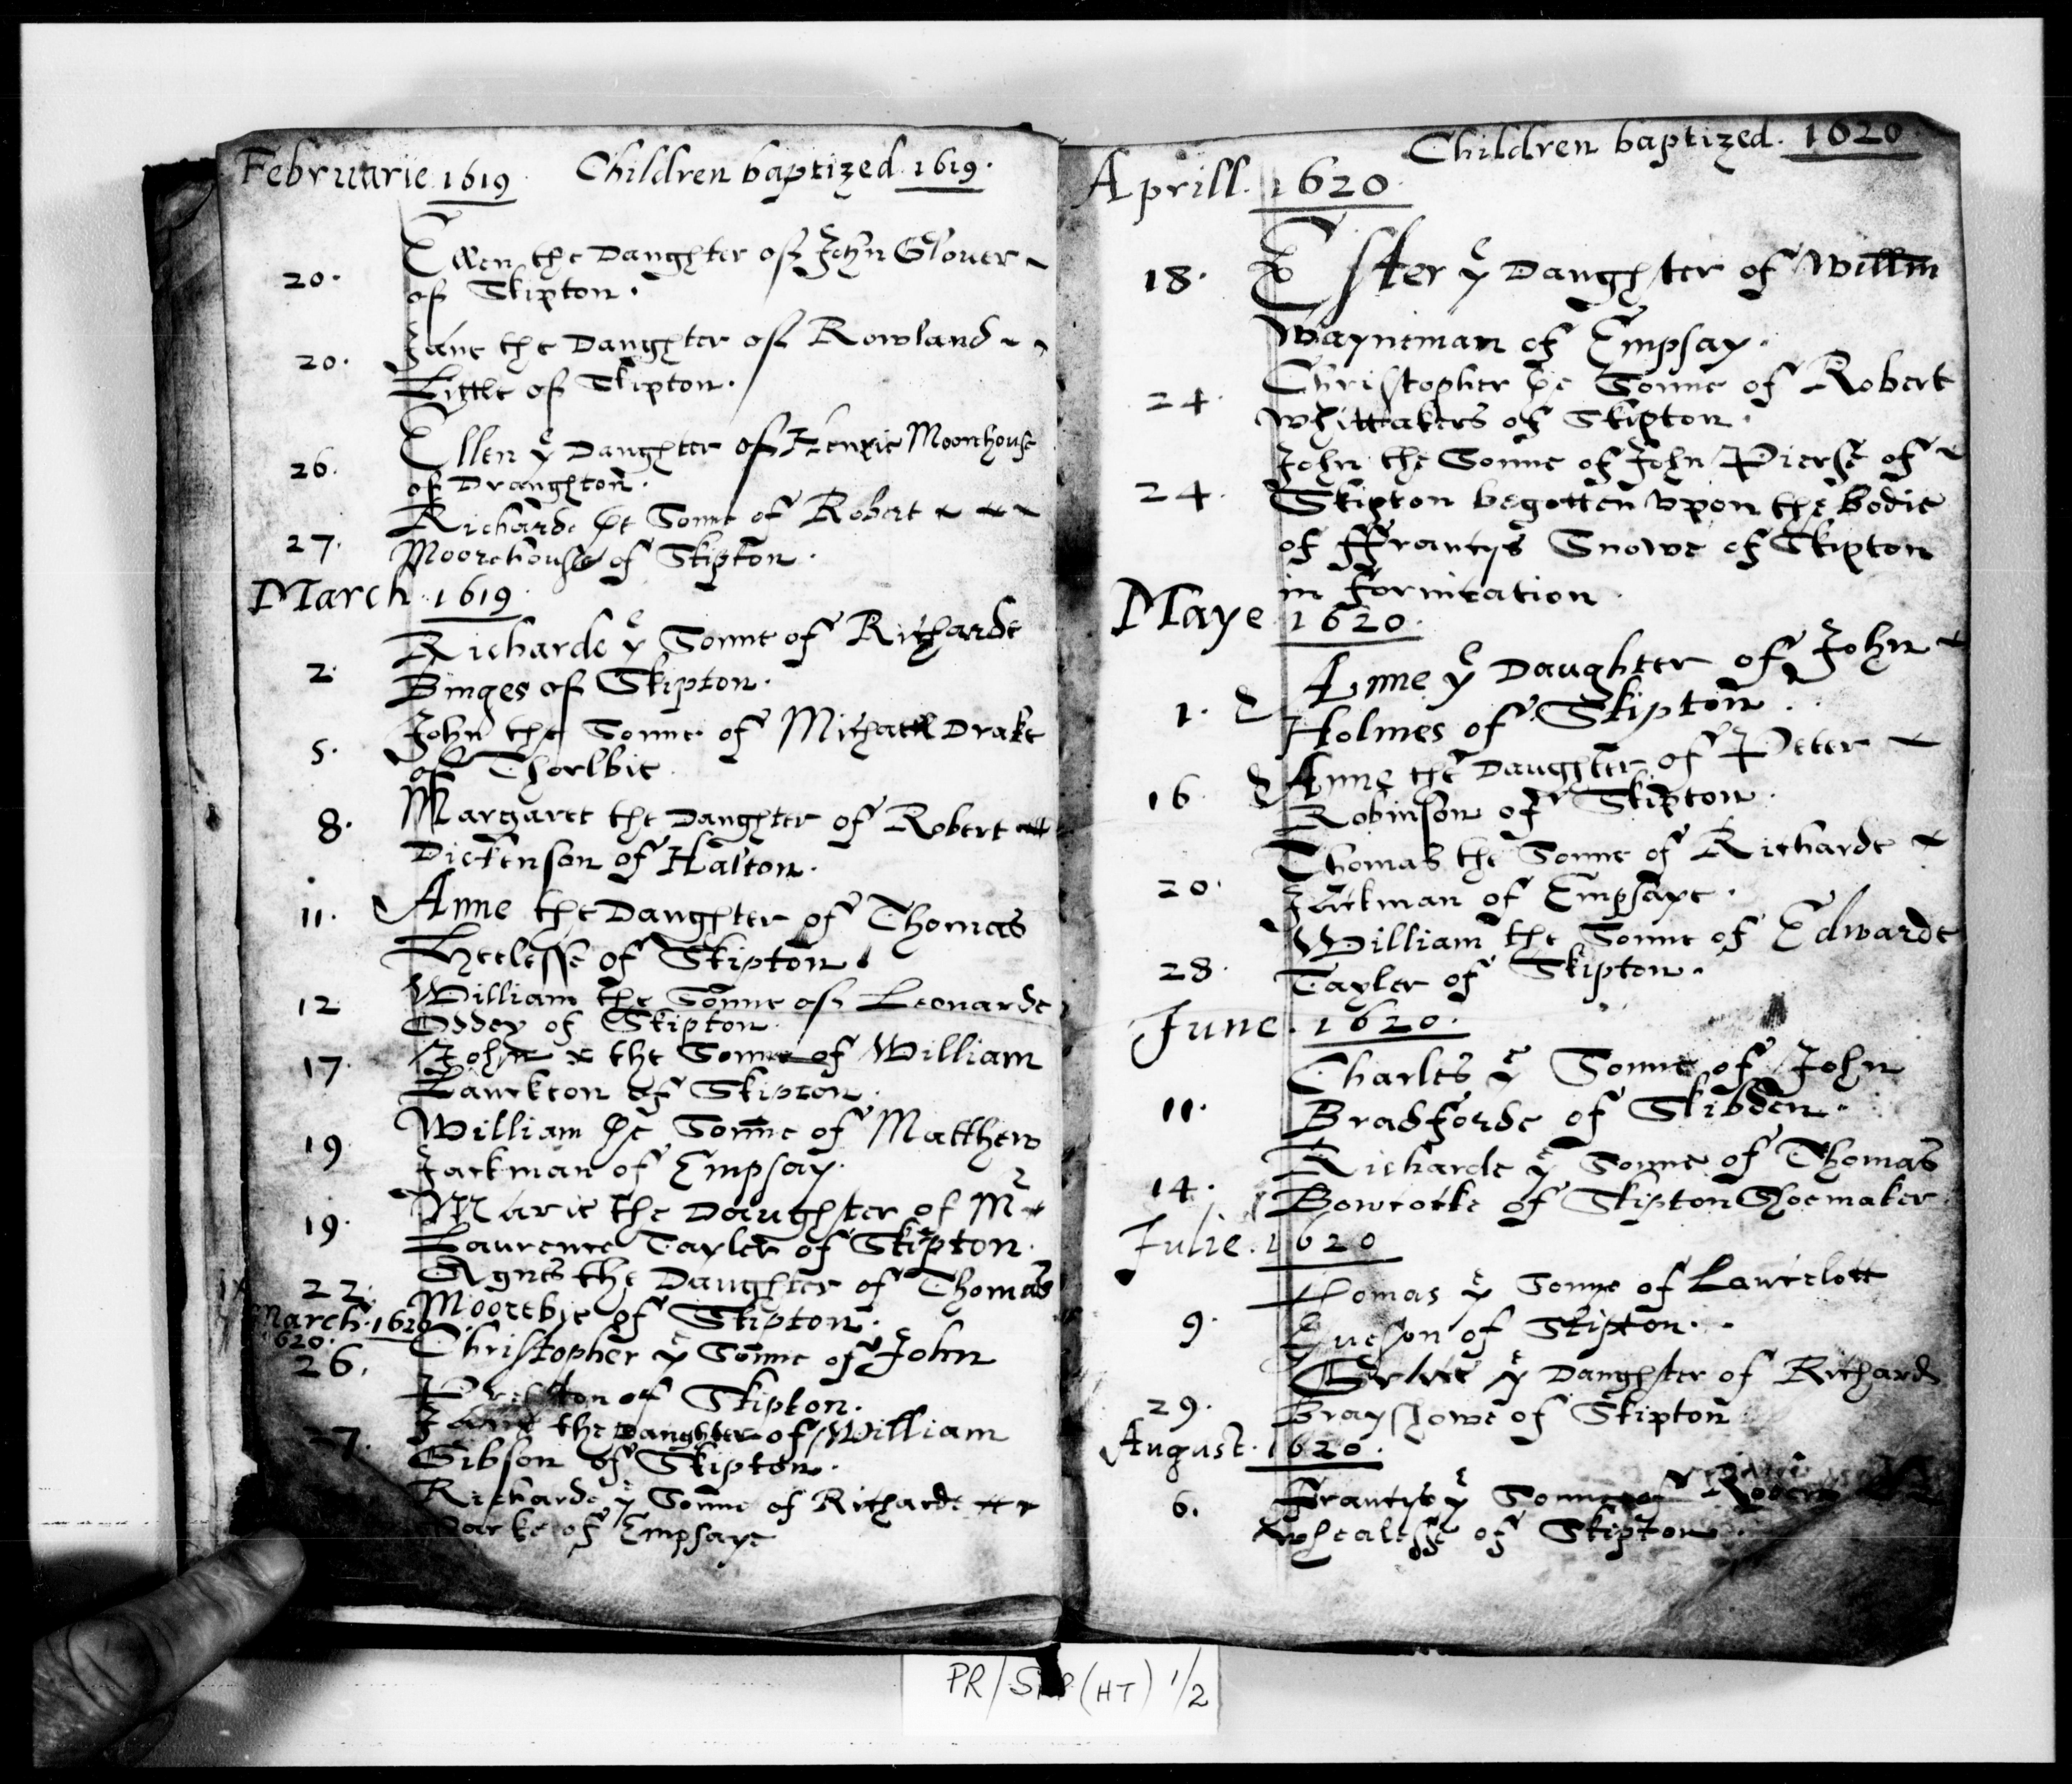 Februarie 1619. Children baptized. 1619.
20. Ellen the Daughter of John Glover
of Skipton.
20. Jane the Daughter of Rowland
Little of Skipton.
26. Ellen yͤ Daughter of Henrie Moorehouse
of Draughton.
27. Richarde the Sonne of Robert
Moorehouse of Skipton.
March 1619.
2. Richarde yͤ Sonne of Richarde
Binges of Skipton.
5. John the Sonne of Michaell Drake
of Thorlbie.
8. Margaret the Daughter of Robert
Dickenson of Halton.
11. Anne the Daughter of Thomas
Heelesse of Skipton
12 William the Sonne of Leonarde
Oddey of Skipton.
17. John the Sonne of William
Lanckton of Skipton.
19 William the Sonne of Matthew
Jackman of Empsay.
19. Marie the Daughter of Mr
Laurence Tayler of Skipton.
22. Agnes the Daughter of Thomas
Moorebye of Skipton.
March. 1620
1620.
26. Christopher yͤ Sonne of John
Preston of Skipton.
27. Jane the Daughter of William
Gibson of Skipton.
Richarde yͤ Sonne of Richarde
Parke of Empsaye
Children baptized. 1620.
Aprill. 1620.
18. Ester yͤ Daughter of Willm
Wayneman of Empsay.
24. Christopher the Sonne of Robert
Whittakers of Skipton.
24. John the Sonne of John Pierse of
Skipton begotten vpon the bodie
of ffrancys Snowe of Skipton
in fornication.
Maye 1620.
1. Anne yͤ Daughter of John
Holmes of Skipton.
16 Anne the Daughter of Peter
Robinson of Skipton.
20. Thomas the Sonne of Richarde
Jackman of Empsaye.
28. William the Sonne of Edwarde
Tayler of Skipton.
June. 1620.
11. Charles yͤ Sonne of John
Bradforde of Skibden.
14. Richarde yͤ Sonne of Thomas
Bowcocke of Skipton Shoemaker
Julie. 1620
9. Thomas yͤ Sonne of Lancelott
Jueson of Skipton.
29. Grace yͤ Daughter of Richard
Brayshowe of Skipton
August. 1620.
6. ffrancys yͤ Sonne of Robert
Whealesse of Skipton.
PR/SKP (HT) 1/2